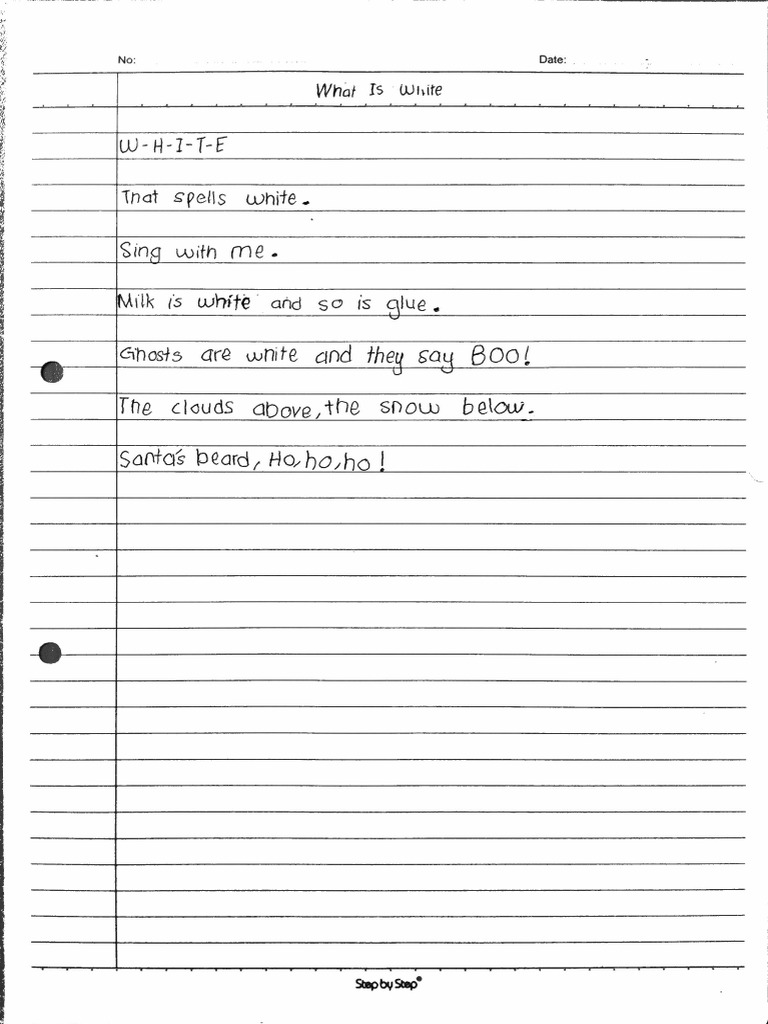 No:
Date:
What Is White
W-H-I-T-E
That spells white.
Sing with me.
Milk is white and so is glue.
Ghosts are white and they say BOO!
The clouds above, the snow below.
Santa's beard, Ho, ho, ho!
Step by Step®